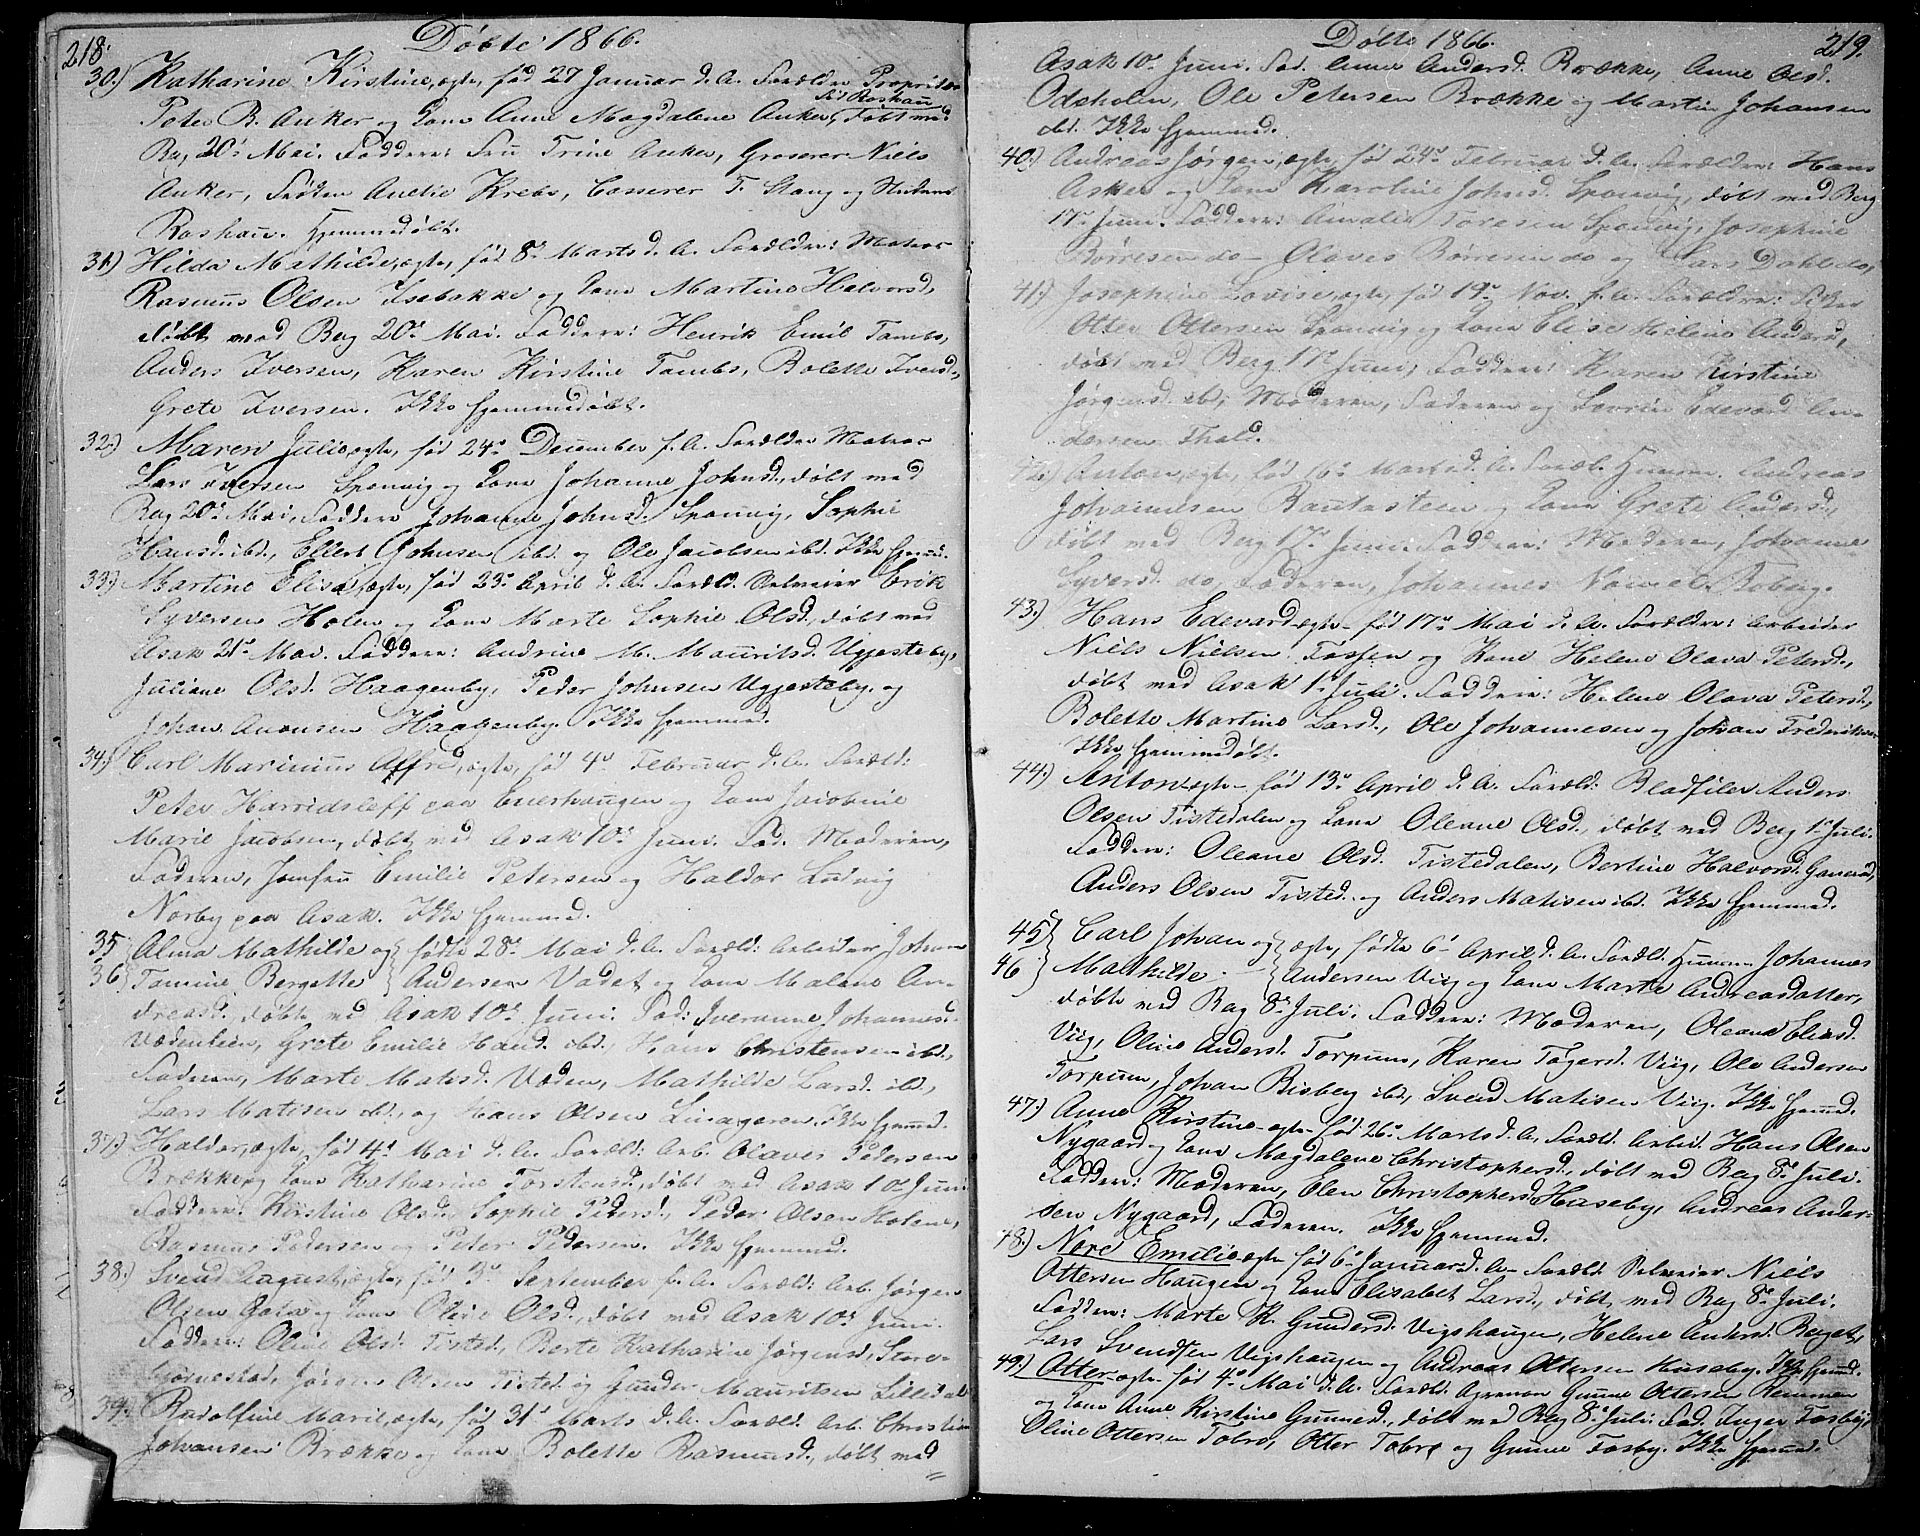 218.
Døbte 1866.
30.) Katharine Kirstine, ægte, fød 27 Januar d. A. Forældre Proprietær
til Röshau
Peter B. Anker og Kone Anne Magdalene Anker, døbt med
Bag 20de Mai. Faddere: Fru Trine Anker, Grosserer Niels
Anker, Frøken Anette Krebs, Casserer T. Stang og Student
Roshau. Hjemmedøbt.
31.) Hilda Mathilde, ægte, fød 8de Marts d. A. Forældre: Matros
Rasmus Olsen Isebakke og Kone Martine Halvorsd.,
døbt med Berg 20de Mai. Faddere: Henrik Emil Tambs,
Anders Iversen, Karen Kirstine Tambs, Bolette Svends.,
Grete Iversen. Ikke hjemmedøbt.
32.) Maren Julie, ægte, fød 24de December f. A. Forældre Matros
Lars Iversen Sponvig og Kone Johanne Johnsd., døbt med
Bag 20de Mai, Faddere Johanne Johnsd. Sponvig, Sophie
Hansd. ibd., Ellert Johnsen ibd. og Ole Jacobsen ibd. Ikke hjemmd.
33.) Martine Elise, ægte, fød 23de April d. A. Foræld. Selveier Erik
Syversen Holen og Kone Marte Sophie Olsd., døbt med
Asak 21de Mai. Faddere: Andrine M. Mauritsd. Ugjesteby,
Juliane Olsd. Haagenby, Peder Johnsen Ugjesteby, og
Johan Anonsen Haagenby. Ikke hjemmed.
34.) Carl Marinius Alfred, ægte, fød 4de Februar d. A. Foræld:
Peter Harridsleff paa Enerhaugen og Kone Jacobine
Marie Jacobsen, døbt med Asak 10de Juni. Fad. Moderen,
Faderen, Jomfru Emilie Petersen og Haldor Ludvig
Norby paa Asak. Ikke hjemmed.
35 Alma Mathilde og } fødte 28de Mai d. A. Foræld: Arbeider Johan
36 Tomine Bergette } Andersen Vadet og Kone Malene An-
dreasd. døbte med Asak 10de Juni. Fad: Iveranne Johannesd.
Vedenteien, Grete Emilie Hansd. ibd., Hans Christensen ibd.,
Faderen, Marte Matisd. Veden, Mathilde Larsd. ibd.,
Lars Matisen ibd., og Hans Olsen. Ikke hjemmd.
37.) Haldor, ægte, fød 4de Mai d. A. Foræld: Arb. Olaves Pedersen
Brække og Kone Katharine Torstensd., døbt med Asak 10de Juni.
Faddere: Kirstine Olsd., Sophie Pedersd., Peder Olsen Holene,
Rasmus Pedersen og Peter Pedersen. Ikke hjemmed.
38.) Svend August, ægte, fød 3de September f. A. Foræld: Arb. Jørgen
Olsen og Kone Oleie Olsd., døbt med Asak 10de Juni.
Faddere: Oline Olsd. Tisted, Berte Katharine Jørgensd. Store-
bjørnestad, Jørgen Olsen Tisted og Gunder Mauritsen Lilledal
39.) Rudolfine Marie, ægte, fød 31te Marts d. A. Foræld. Arb. Christian
Johansen Brække og Kone Bolette Rasmusd., døbt med
219.
Døbte 1866.
Asak 10de Juni. Fad. Anne Andersd. Brække, Anne Olsd.
Odsholen, Ole Petersen Brække og Martin Johansen
ibd. Ikke hjemmed.
40.) Andreas Jørgen, ægte, fød 24de Februar d. A. Forældre: Hans
Asker og Kone Karoline Johnsd. Sponvig, døbt med Berg
17de Juni. Faddere: Amalie Toresen Sponvig, Josephine
Børresen do Olaves Børresen do og Lars Dahl do,
41.) Josephine Lovise, ægte, fød 19de Nov. f. A. Forældre: Fisker
Otter Ottersen Sponvig og Kone Elise Helene Andersd.,
døbt med Berg 17de Juni, Faddere: Karen Kirstine
Jørgensd. ibd, Moderen, Faderen og Lovrin Edevard An-
dersen Thald.
42) Anton, ægte, fød 16de Marts d. A. Foræl. Huusm. Andreas
Johannesen Bautasteen og Kone Grete Andersd.,
døbt med Berg 17de Juni. Faddere: Moderen, Johanne
Syversd. do, Faderen, Johannes
43.) Hans Edevard ægte fød 17de Mai d. A. Forældre: Arbeider
Niels Nielsen Fossen og Kone Helene Olava Petersd.,
døbt med Asak 1ste Juli. Faddere: Helene Olava Petersd.,
Bolette Martine Larsd., Ole Johannesen og Johan Frederiksen
Ikke hjemmedøbt.
44.) Anton ægte fød 13de April d. A. Foræld: Bladfiler Anders
Olsen Tistedalen og Kone Oleane Olsd., døbt med Berg 1ste Juli.
Faddere: Oleane Olsd. Tistedalen, Bertine Halvorsd.
Anders Olsen Tisted. og Anders Matisen ibd. Ikke hjemmed.
45 } Carl Johan og } ægte, fødte 6te April d. A. Foræld. Huusm. Johannes
46 } Mathilde } Andersen Viig og Kone Marte Andreasdatter,
døbte med Bag 8de Juli. Faddere: Moderen, Oleana Eliasd.
Viig, Oline Andersd. Torpum, Karen Togersd. Viig, Ole Andersen
Torpum, Johan Bisberg ibd, Svend Matisen Viig. Ikke hjemmd.
47.) Anne Kirstine ægte fød 26de Marts d. A. Foræld. Arbeid. Hans Olsen
Nygaard og Kone Magdalene Christophersd., døbt med Bag 8de Juli.
Faddere: Moderen, Olea Christophersd. Huseby, Andreas Ander-
sen Nygaard, Faderen. Ikke hjemmed.
48.) Nore Emilie ægte fød 6te Januar d. A. Foræld. Selveier Niels
Ottersen Haugen og Kone Elisabet Larsd., døbt med Bag 8de Juli.
Faddere: Marte K. Gundersd. Vigshaugen, Helene Andersd. Berget,
Lars Svendsen Vigshaugen og Andreas Ottersen Huseby. Ikke hjemmd.
49.) Otter ægte fød 4de Mai d. A. Foræld. Gunne Ottersen Remmen
og Kone Anne Kirstine Gunnesd., døbt med Bag 8de Juli. Fad. Inger Fosby,
Oline Ottersen Tobro, Otter Tobro og Gunne Fosby. Ikke hjemmd.